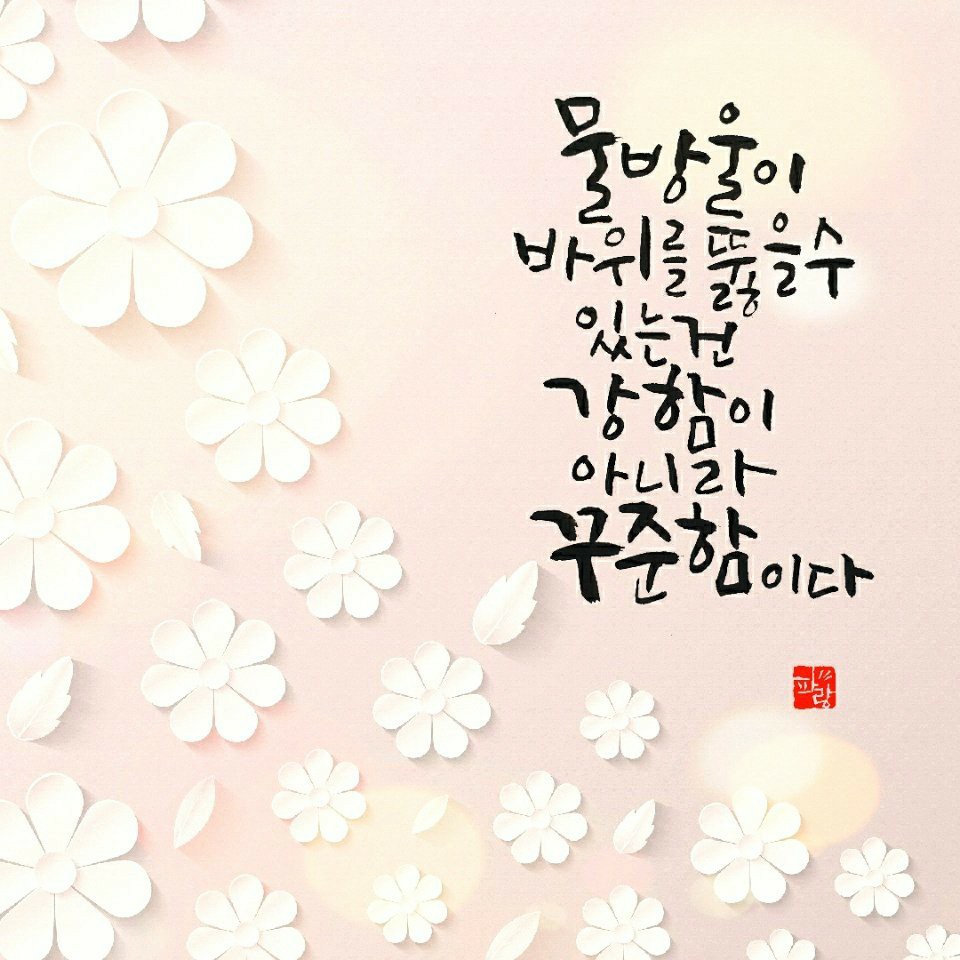 물방울이
바위를 뚫을수
있는건
강함이
아니라
꾸준함이다
파랑